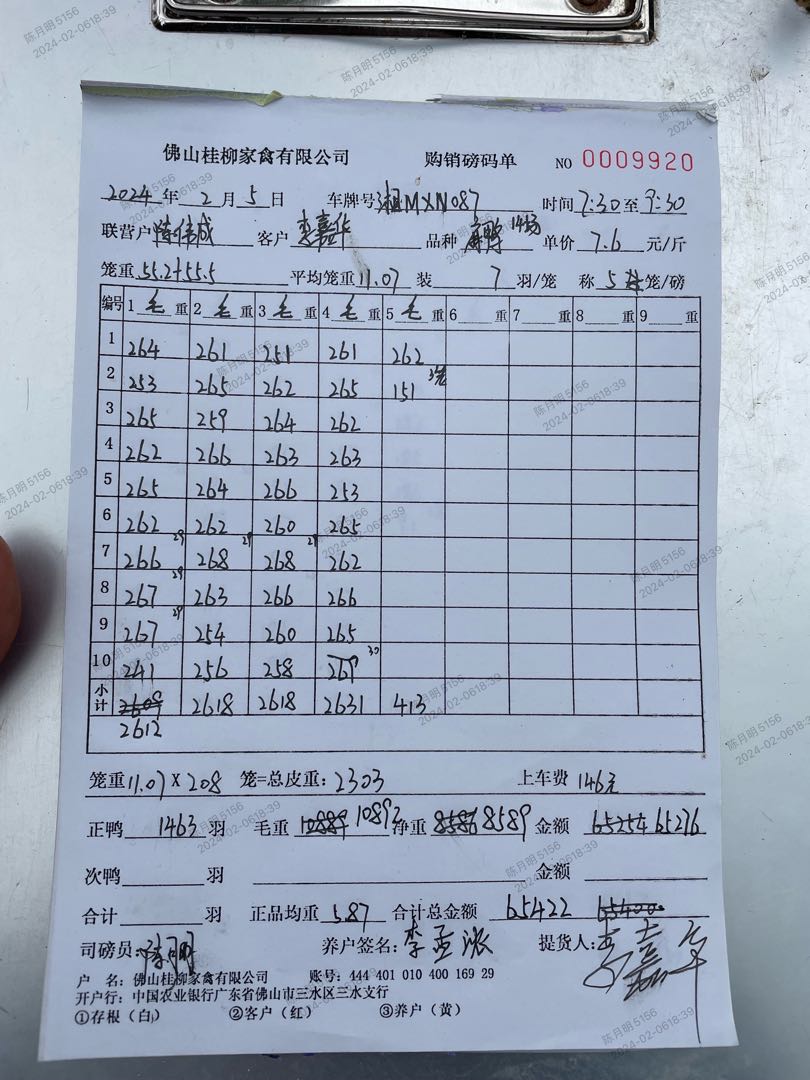 佛山桂柳家禽有限公司 购销磅码单 NO 0009920
2024年 2月5日 车牌号 湘MXN087 时间 7:30至9:30
联营户 陈伟成 客户 李嘉华 品种 单价 7.6 元/斤
笼重 55.2+55.5 平均笼重 11.07 装 7 羽/笼 称 5 笼/磅
编号 1 毛 重 2 毛 重 3 毛 重 4 毛 重 5 毛 重 6 重 7 重 8 重 9 重
1 264 261 251 261 262
2 253 265 262 265 151 3笼
3 265 259 264 262
4 262 266 263 263
5 265 264 266 253
6 262 262 260 265
7 266 29 268 29 268 29 262
8 267 29 263 266 266
9 267 29 254 260 265
10 241 256 258 269 30
小计 2609 2618 2618 2631 413
2612
笼重 11.07×208 笼=总皮重: 2303 上车费 146元
正鸭 1463 羽 毛重 10889 10892 净重 8586 8589 金额 65254 65276
次鸭 羽 金额
合计 羽 正品均重 5.87 合计总金额 65422 65400
司磅员: 养户签名: 李 提货人: 李嘉华
户 名: 佛山桂柳家禽有限公司 账号: 444 401 010 400 169 29
开户行: 中国农业银行广东省佛山市三水区三水支行
①存根（白） ②客户（红） ③养户（黄）
陈月明5156
2024-02-0618:39